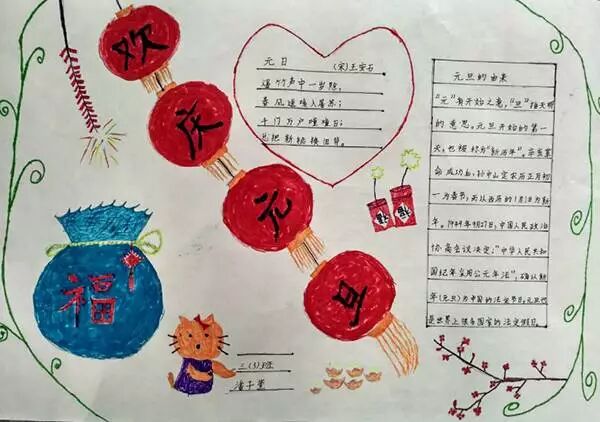 欢
庆
元
旦
元日
(宋)王安石
爆竹声中一岁除,
春风送暖入屠苏;
千门万户曈曈日;
总把新桃换旧符。
元旦的由来
“元”有开始之意,“旦”指天明
的意思。元旦开始的第一
天,也被称为“新历年”。辛亥革
命成功后,孙中山定农历正月初
一为春节,而以西历的1月1日为新
年。1949年9月27日,中国人民政治
协商会议决定:“中华人民共和
国纪年采用公元年法”,确认新
年(元旦)为中国的法定节日。元旦也
是世界上很多国家的法定假日。
福
福
福
三(3)班
潘子萱